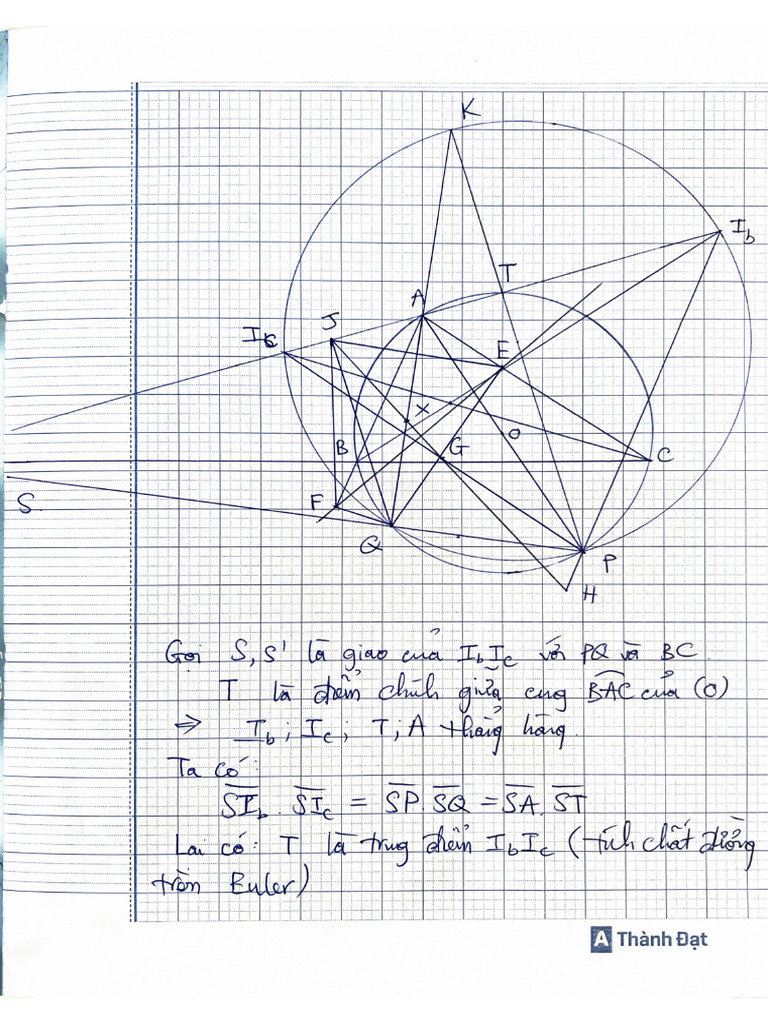 K
I_b
T
A
J
I_c
E
X
O
B
G
C
F
S
Q
P
H
Gọi S, S' là giao của I_bI_c với PQ và BC
T là điểm chính giữa cung BAC của (O)
⇒ I_b ; I_c ; T ; A thẳng hàng.
Ta có:
SI_b . SI_c = SP . SQ = SA . ST
Lại có: T là trung điểm I_bI_c (tính chất đường
tròn Euler)
A Thành Đạt